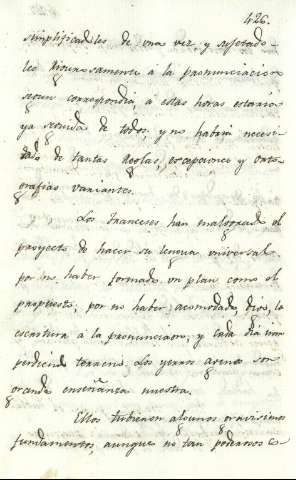 426.
simplificadoles de una vez, y sujetado-
les rigurosamente á la pronunciacion
segun correspondia, á estas horas estaria
ya seguida de todos, y no habria necesi-
dad de tantas reglas, excepciones y orto-
grafias variantes.
Los franceses han malogrado el
proyecto de hacer su lengua universal
por no haber formado un plan como el
propuesto; por no haber acomodado, digo, la
escritura á la pronunciacion, y cada dia van
perdiendo terreno. Los yerros agenos son
grande enseñanza nuestra.
Ellos tubieron algunos gravisimos
fundamentos, aunque no tan poderosos co-